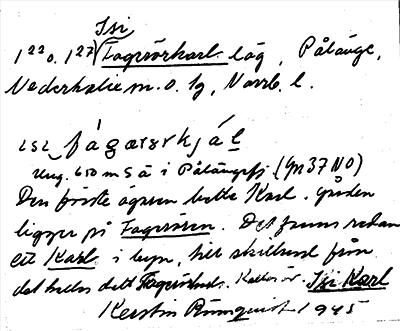 Isi
1²² o. 1²⁷ Fagerörkarl låg, Pålänge,
Nederkalix m. o. lg, Norrb. l.
ɪsɪ fágærørkjál
Ung. 650 m S ä i Pålängefj (Gn 37 NO)
Den förste ägaren hette Karl. Gården
ligger på Fagerören. Det finns redan
ett Karl i byn, till skillnad från
det kallas detta Fagerörkarl. Kallas äv. Isi Karl
Kerstin Rönnquist 1945